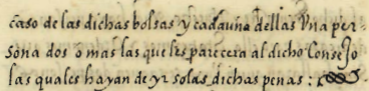 caso de las dichas bolsas y cada una dellas Vna per-
sona dos o mas las que les parecera al dicho Consejo
las quales hayan de yr solas dichas penas: